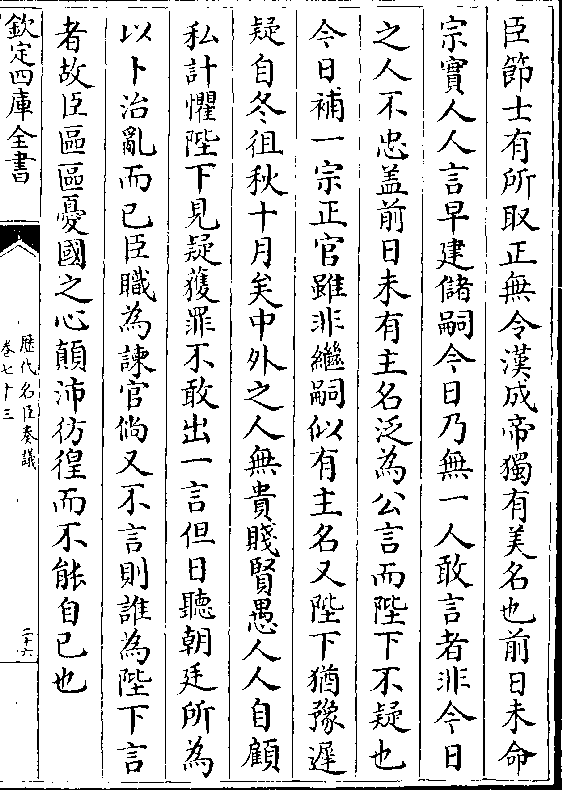 臣節士有所取正無令漢成帝獨有美名也前日未命
宗實人人言早建儲嗣今日乃無一人敢言者非今日
之人不忠盖前日未有主名泛為公言而陛下不疑也
今日補一宗正官雖非繼嗣似有主名又陛下猶豫遲
疑自冬徂秋十月矣中外之人無貴賤賢愚人人自顧
私計懼陛下見疑獲罪不敢出一言但日聽朝廷所為
以卜治亂而已臣職為諫官倘又不言則誰為陛下言
者故臣區區憂國之心顛沛彷徨而不能自已也
欽定四庫全書
歷代名臣奏議
卷七十三
二十六